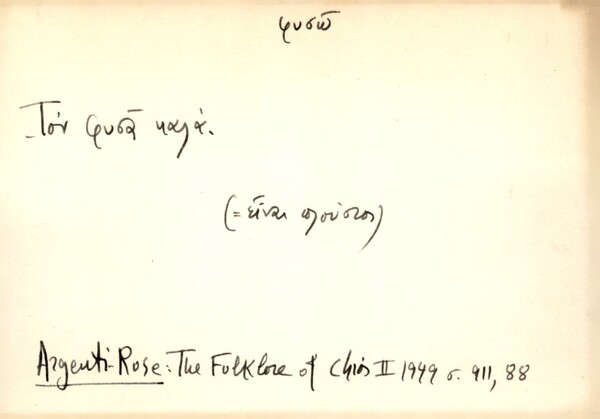 φυσῶ
Τὸν φυσᾶ καλά.
(= εἶναι πλούσιος)
Argenti-Rose: The Folklore of Chios II 1949 σ. 911, 88